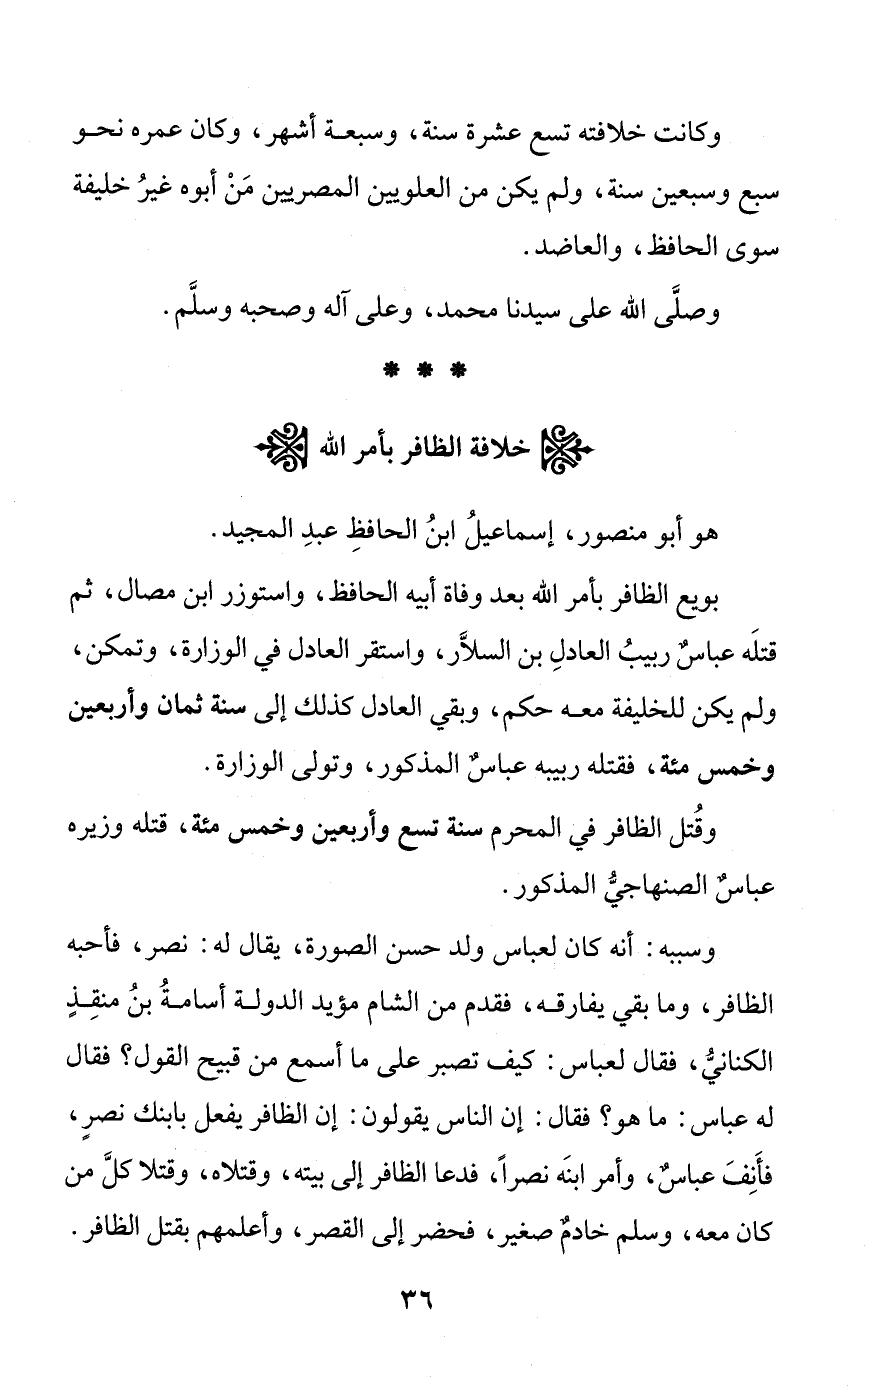 وكانت خلافته تسع عشرة سنة، وسبعة أشهر، وكان عمره نحو
سبع وسبعين سنة، ولم يكن من العلويين المصريين مَنْ أبوه غيرُ خليفة
سوى الحافظ، والعاضد.
وصلَّى الله على سيدنا محمد، وعلى آله وصحبه وسلَّم.
* * *
خلافة الظافر بأمر الله
هو أبو منصور، إسماعيلُ ابنُ الحافظِ عبدِ المجيد.
بويع الظافر بأمر الله بعد وفاة أبيه الحافظ، واستوزر ابن مصال، ثم
قتلَه عباسٌ ربيبُ العادلِ بن السلاَّر، واستقر العادل في الوزارة، وتمكن،
ولم يكن للخليفة معه حكم، وبقي العادل كذلك إلى سنة ثمان وأربعين
وخمس مئة، فقتله ربيبه عباسٌ المذكور، وتولى الوزارة.
وقُتل الظافر في المحرم سنة تسع وأربعين وخمس مئة، قتله وزيره
عباسٌ الصنهاجيُّ المذكور.
وسببه: أنه كان لعباس ولد حسن الصورة، يقال له: نصر، فأحبه
الظافر، وما بقي يفارقه، فقدم من الشام مؤيد الدولة أسامةُ بنُ منقِذٍ
الكنانيُّ، فقال لعباس: كيف تصبر على ما أسمع من قبيح القول؟ فقال
له عباس: ما هو؟ فقال: إن الناس يقولون: إن الظافر يفعل بابنك نصرٍ،
فأَنِفَ عباسٌ، وأمر ابنَه نصراً، فدعا الظافر إلى بيته، وقتلاه، وقتلا كلَّ من
كان معه، وسلم خادمٌ صغير، فحضر إلى القصر، وأعلمهم بقتل الظافر.
٣٦